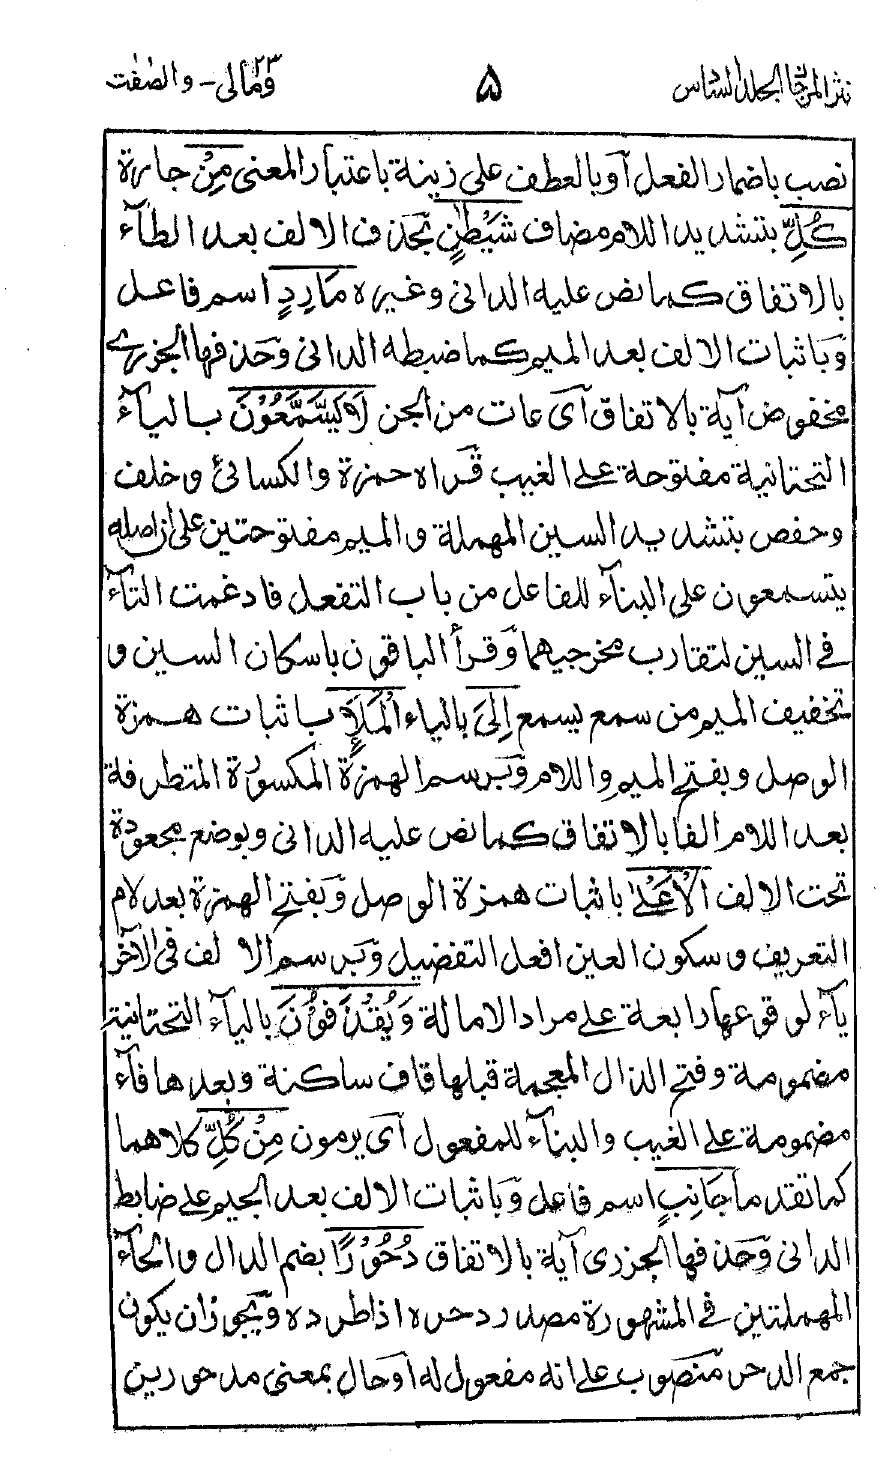 نثر المرجان المجلد السادس ۵ ومالی ٢٣ - والصفت
نصب باضمار الفعل اَو بالعطف على زينة باعتبار المعنى مِنْ جارة
كُلِّ بتشديد اللام مضاف شَيْطٰنٍ بحذف الالف بعد الطآء
بالاتفاق كما نص عليه الدانى وغيره مَارِدٍ اسم فاعل
وَباثبات الالف بعد الميم كما ضبطه الدانى وَحذفها الجزرى
مخفوض آية بالاتفاق اَى عات من الجن لَا يَسَّمَّعُوْنَ بالياٰء
التحتانية مفتوحة على الغيب قَراه حمزة والكسائى وخلف
وحفص بتشديد السين المهملة والميم مفتوحتين على ان اصله
يتسمعون على البنآء للفاعل من باب التفعل فادغمت التآء
فى السين لتقارب مخرجيهما وَقرأ الباقون باسكان السين و
تخفيف الميم من سمع يسمع اِلَى بالياء الْمَلَاِ باثبات همزة
الوصل وبفتح الميم واللام وَبرسم الهمزة المكسورة المتطرفة
بعد اللام الفا بالاتفاق كما نص عليه الدانى وبوضع مجعودة
تحت الالف الْاَعْلٰى باثبات همزة الوصل وَبفتح الهمزة بعد لام
التعريف وسكون العين افعل التفضيل وَبرسم الالف فى الآخر
يآء لوقوعها رابعة على مراد الامالة وَيُقْذَفُوْنَ بالياٰء التحتانية
مضمومة وفتح الذال المعجمة قبلها قاف ساكنة وبعدها فآء
مضمومة على الغيب والبنآء للمفعول اَى يرمون مِنْ كُلِّ كلاهما
كما تقدما جَانِبٍ اسم فاعل وَباثبات الالف بعد الجيم على ضابط
الدانى وَحذفها الجزرى آية بالاتفاق دُحُوْرًا بضم الدال والحآء
المهملتين فى المشهورة مصدر دحره اذا طرده وَيجوز ان يكون
جمع الدحر مَنصوب على انه مفعول له اَو حال بمعنى مدحورين